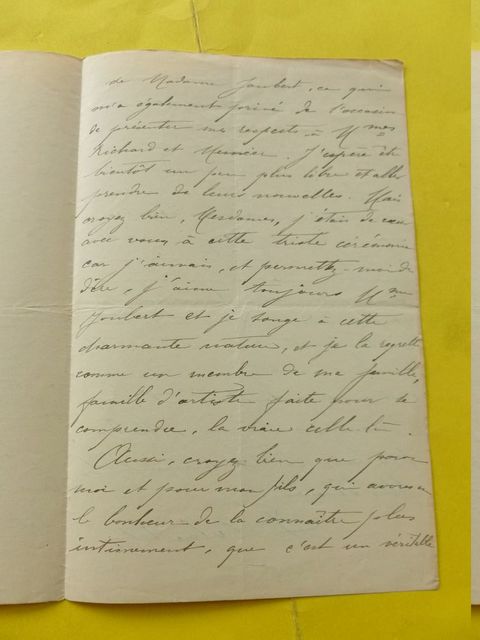 de Madame Joubert, ce qui
m'a également privé de l'occasion
de présenter mes respects à Mmes
Richard et Mercier. J'espère être
bientôt un peu plus libre et aller
prendre de leurs nouvelles. Mais
croyez bien, Mesdames, j'étais de cœur
avec vous à cette triste cérémonie
car j'aimais, et permettez-moi de
dire, j'aime toujours Mme
Joubert et je songe à cette
charmante nature, et je la regrette
comme un membre de ma famille,
famille d'artiste faite pour se
comprendre, la vraie celle-là.
Aussi, croyez bien que pour
moi et pour mon fils, qui avons eu
le bonheur de la connaître plus
intimement, que c'est un véritable